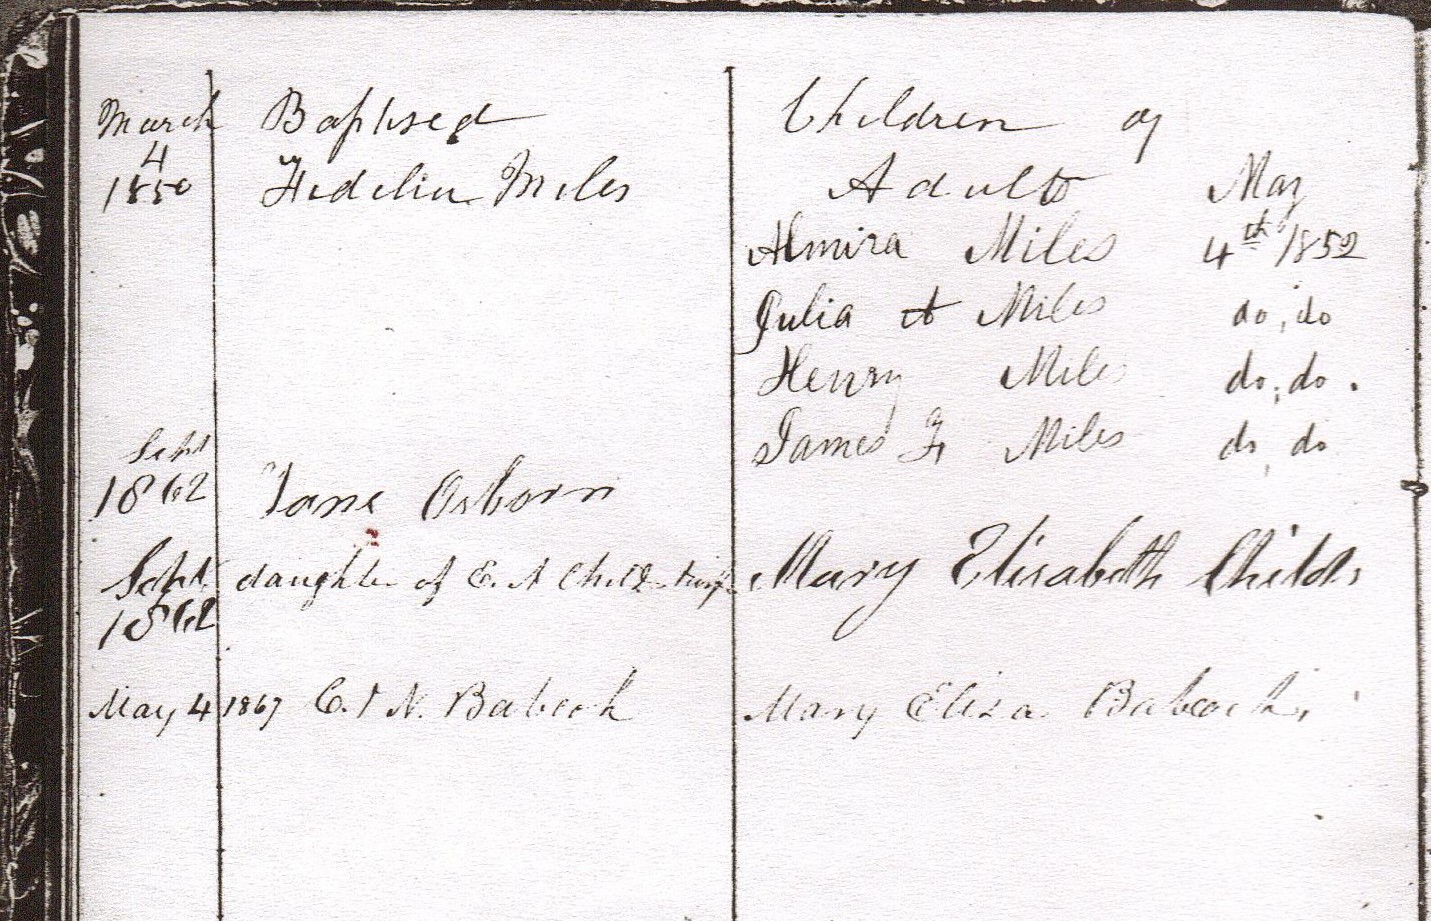 March Baptised Children of
4
1850 Fidelia Miles Adults May
Almira Miles 4th 1852
Julia A Miles do, do
Henry Miles do, do.
James F Miles do, do
Sept
1862 Jane Osborn
Sept. daughter of E. A Childs Mary Elisabeth Childs
1862
May 4 1867 C. N. Babcock Mary Eliza Babcock,